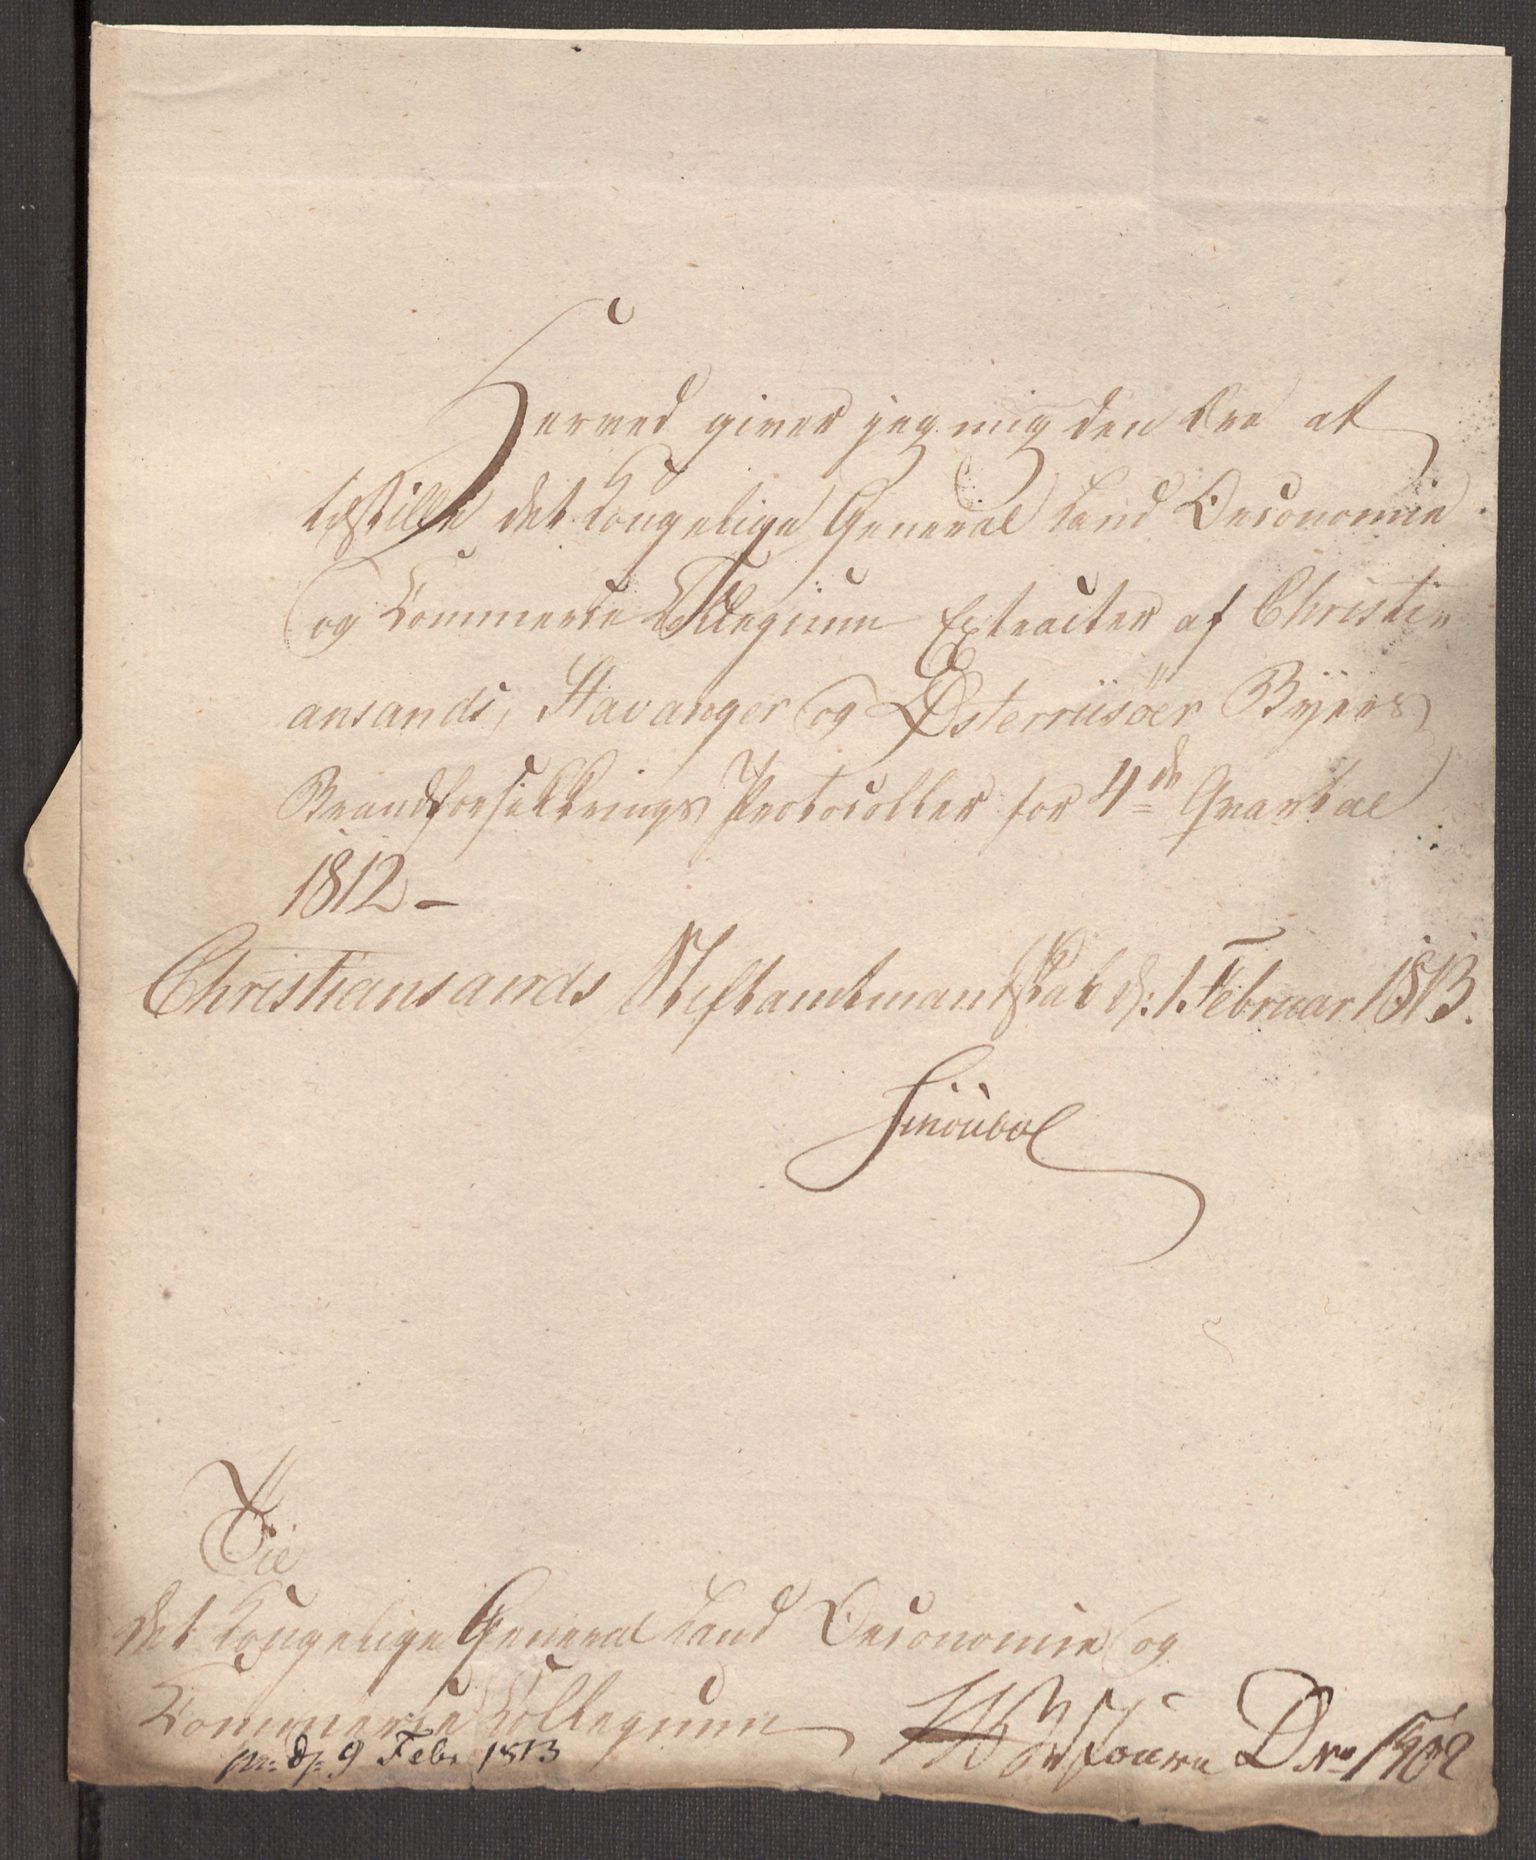 Herved giver jeg mig den Ære at
tilstille det Kongelige General Land Oeconomie
og Commerce Collegium Extracter af Christi-
ansands, Stavanger og Østerriisöer Byers
Brandforsikkrings Protocoller for 4de Qvartal
1812 –
Christiansands Stiftamtmandskab d: 1. Februar 1813.
Til
det Kongelige General Land Oeconomie og
Commerce Collegium
pr: d: 9 Febr 1813
D No 1902